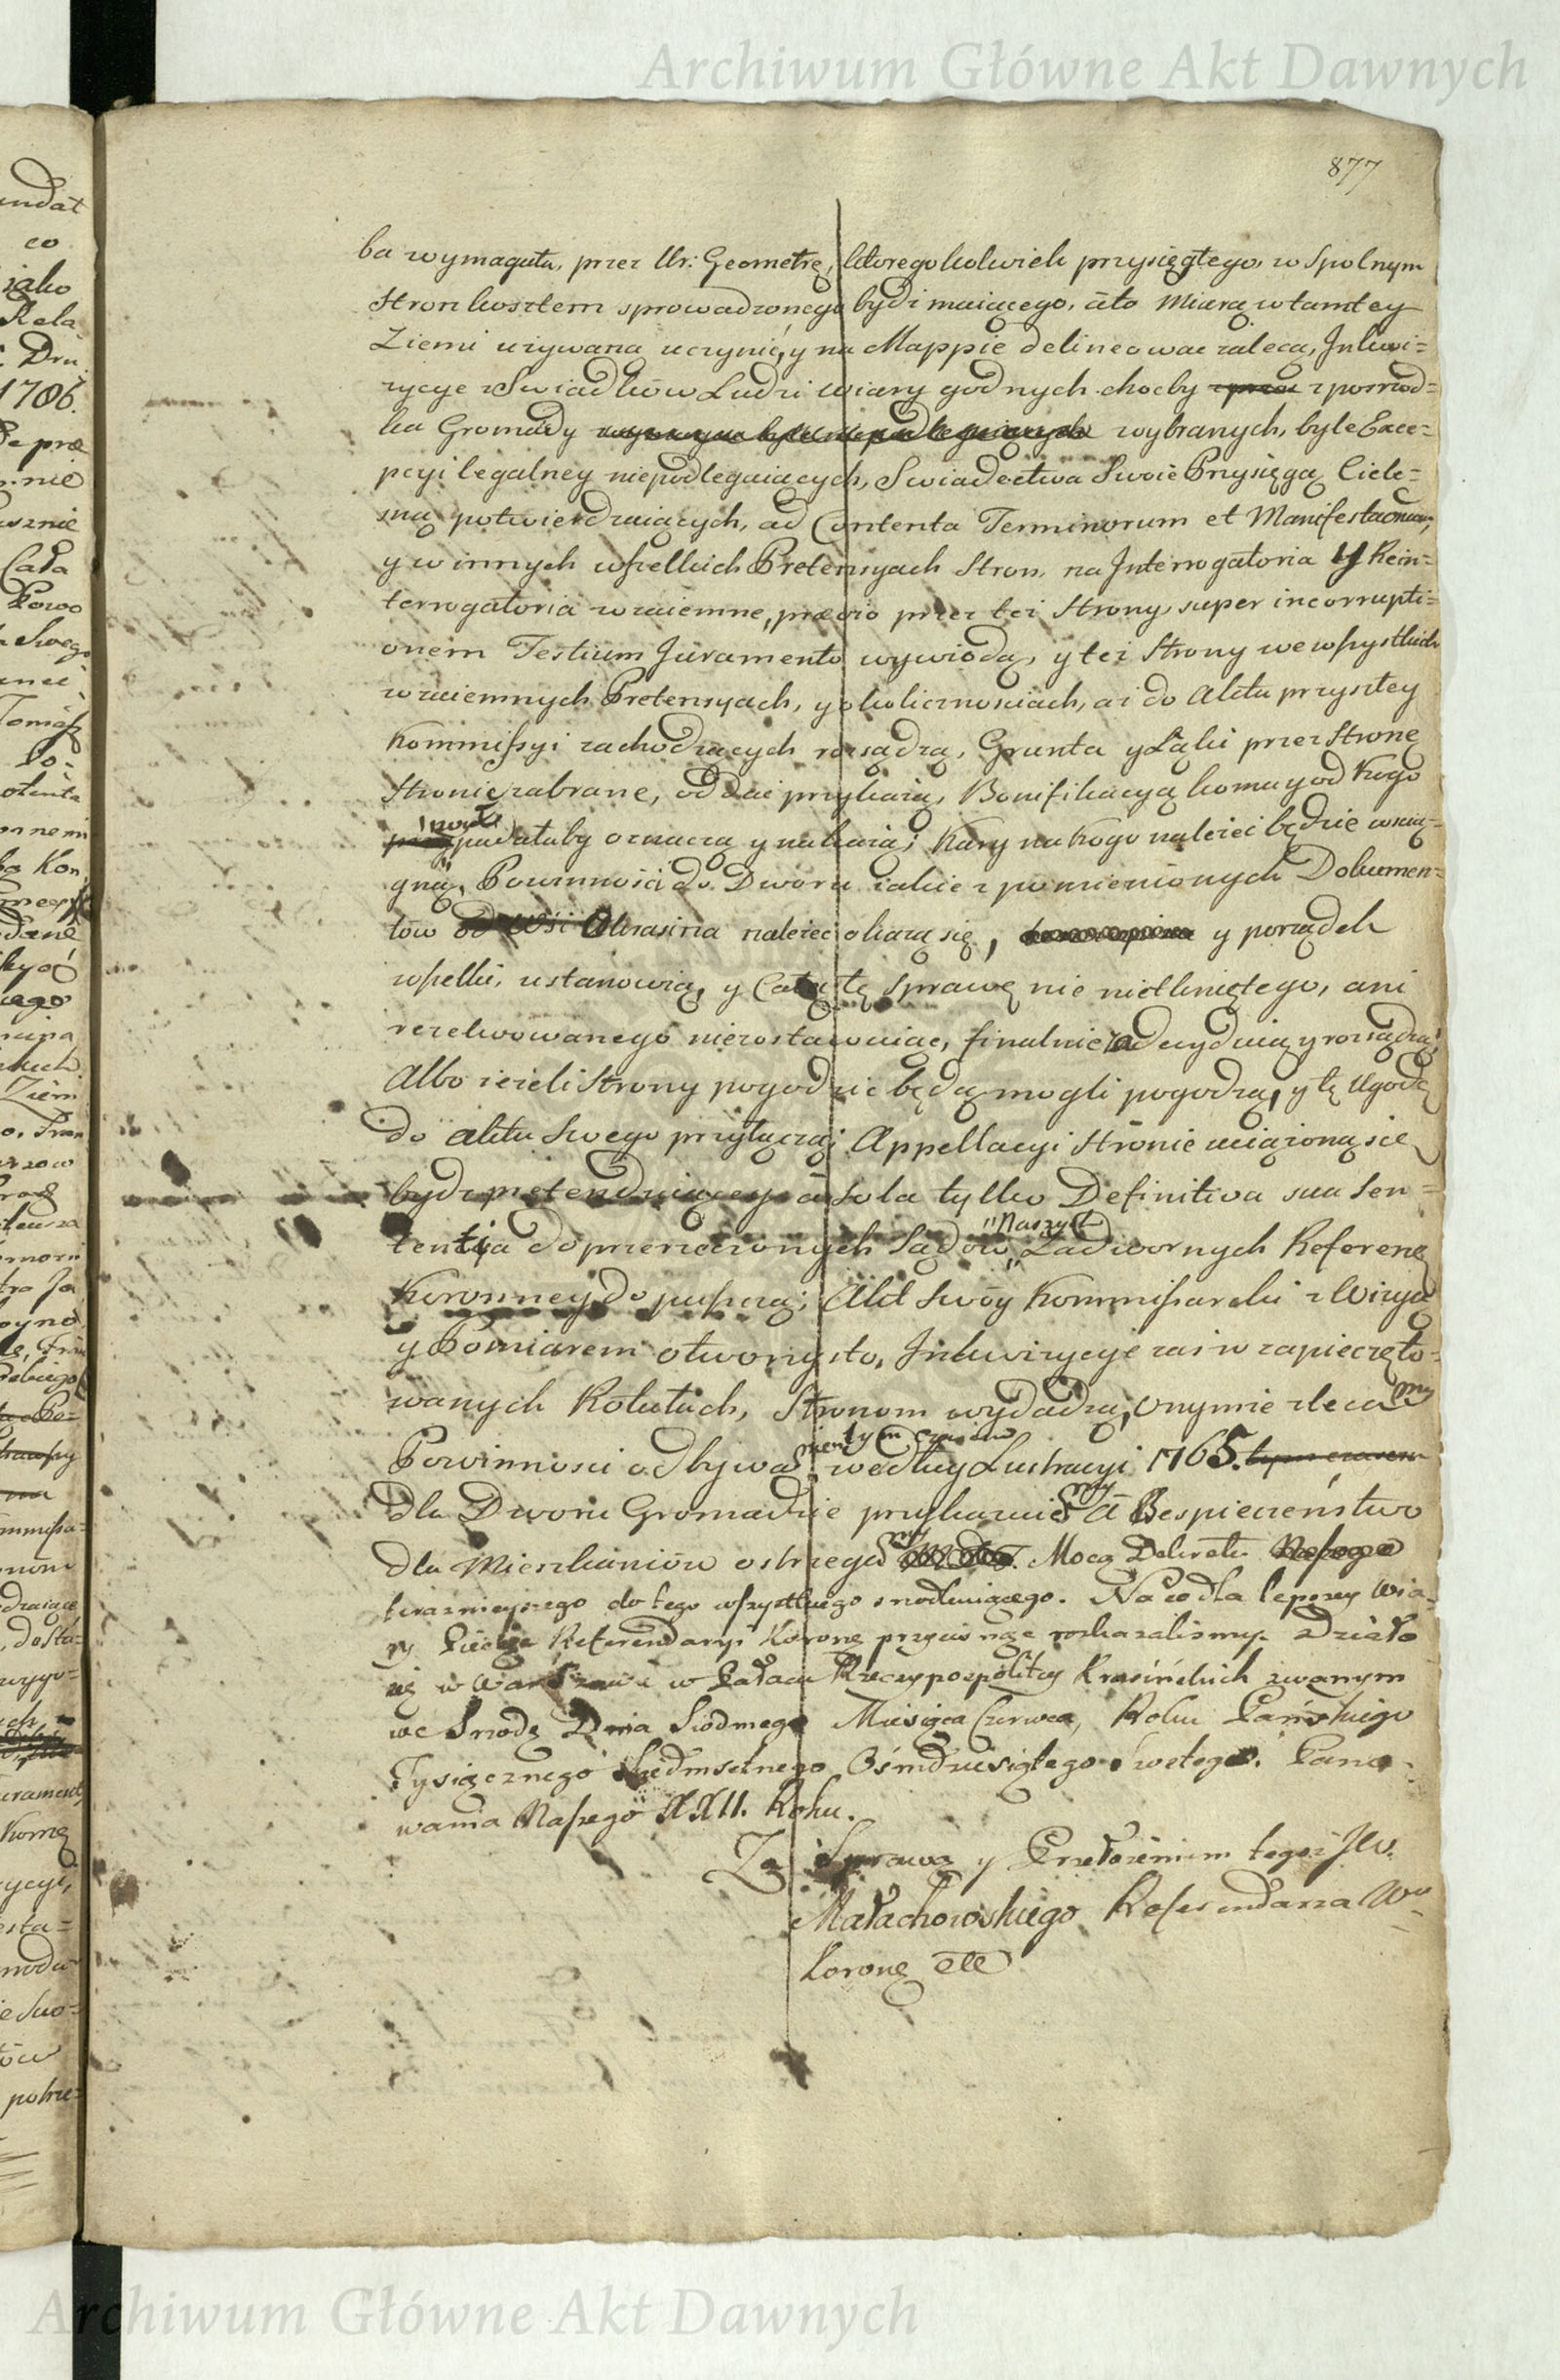 Archiwum Główne Akt Dawnych
877
ba wymagała, przez Ur: Geometrę, ktoregokolwiek przysięgłego, w Spolnym
Stron kosztem sprowadzonego bydź maiącego, áto Miarą w tamtey
Ziemi używaną uczynić, y na Mappie delineować zalecą, Inkwi=
zycye z Swiadków Ludzi wiary godnych choćby z posrzod=
ka Gromady wybranych, byle Exce=
pcyi legalney niepodlegaiących, Swiadectwa Swoie Przysięgą Ciele=
sną potwierdzaiących, ad Contenta Terminorum et Manifestaonum,
y w innych wszelkich Pretensyach Stron, na Interrogatoria y Rein=
terrogatoria wzaiemne, prævio przez też Strony super incorrupti=
onem Testium Juramento wywiodą, y też Strony we wszystkich
wzaiemnych Pretensyach, y okolicznosciach, aż do Aktu przyszłey
Kommissyi zachodzących rozsądzą, Grunta y Łąki przez Stronę
Stronie zabrane, oddać przykażą, Bonifikacyą komu y od kogo
padałaby oznaczą y nakażą; Kary na kogo należeć będzie wscią=
gną, Powinności do Dworu iakie z pomienionych Dokumen=
tów od Wsi Okrasina należeć okażą się, y porządek
wszelki, ustanowią, y Całą tę Sprawę nic nietkniętego, ani
rezelwowanego niezostawuiąc, finalnie zadecyduią y rozsądzą;
Albo ieżeli Strony pogodzić będą mogli pogodzą, y tę Ugodę
do Aktu Swego przyłączą; Appellacyi Stronie uciążoną się
bydź pretenduiącey á Sola tylko Definitiva sua Sen=
tentia do przerzeczonych Sądów "Naszych" Zadwornych Referenę
Koronney dopuszczą; Akt Swóy Kommissarski z Wizyą
y Pomiarem otworzysto, Inkwizycye zaś w zapieczęto=
wanych Rotułach, Stronom wydadzą, Onymie zlecamy
Powinnosci odbywanie tym czasem według Lustracyi 1765. tym czasem
dla Dworu Gromadzie przykazuiemy á Bespieczeństwo
dla Mieszkaniów ostrzegamy Mocą Dekretu Naszego
teraznieyszego do tego wszystkiego srzodkuiącego. Na co dla lepszey Wia=
ry Pieczęć Referendaryi Koronę przycisnąć rozkazalismy. Działo
się w Warszawie w Pałacu Rzeczypospolitey Krasińskich zwanym
we Srzodę Dnia Siodmego Miesiąca Czerwca, Roku Pańskiego
Tysiącznego Siedmsetnego Ośmdziesiątego Szostego. Pano=
wania Naszego XXII. Roku.
Za Sprawą y Przełożeniem tegoż JW.
Małachowskiego Referendarza Wo
Koronę etc
Archiwum Główne Akt Dawnych